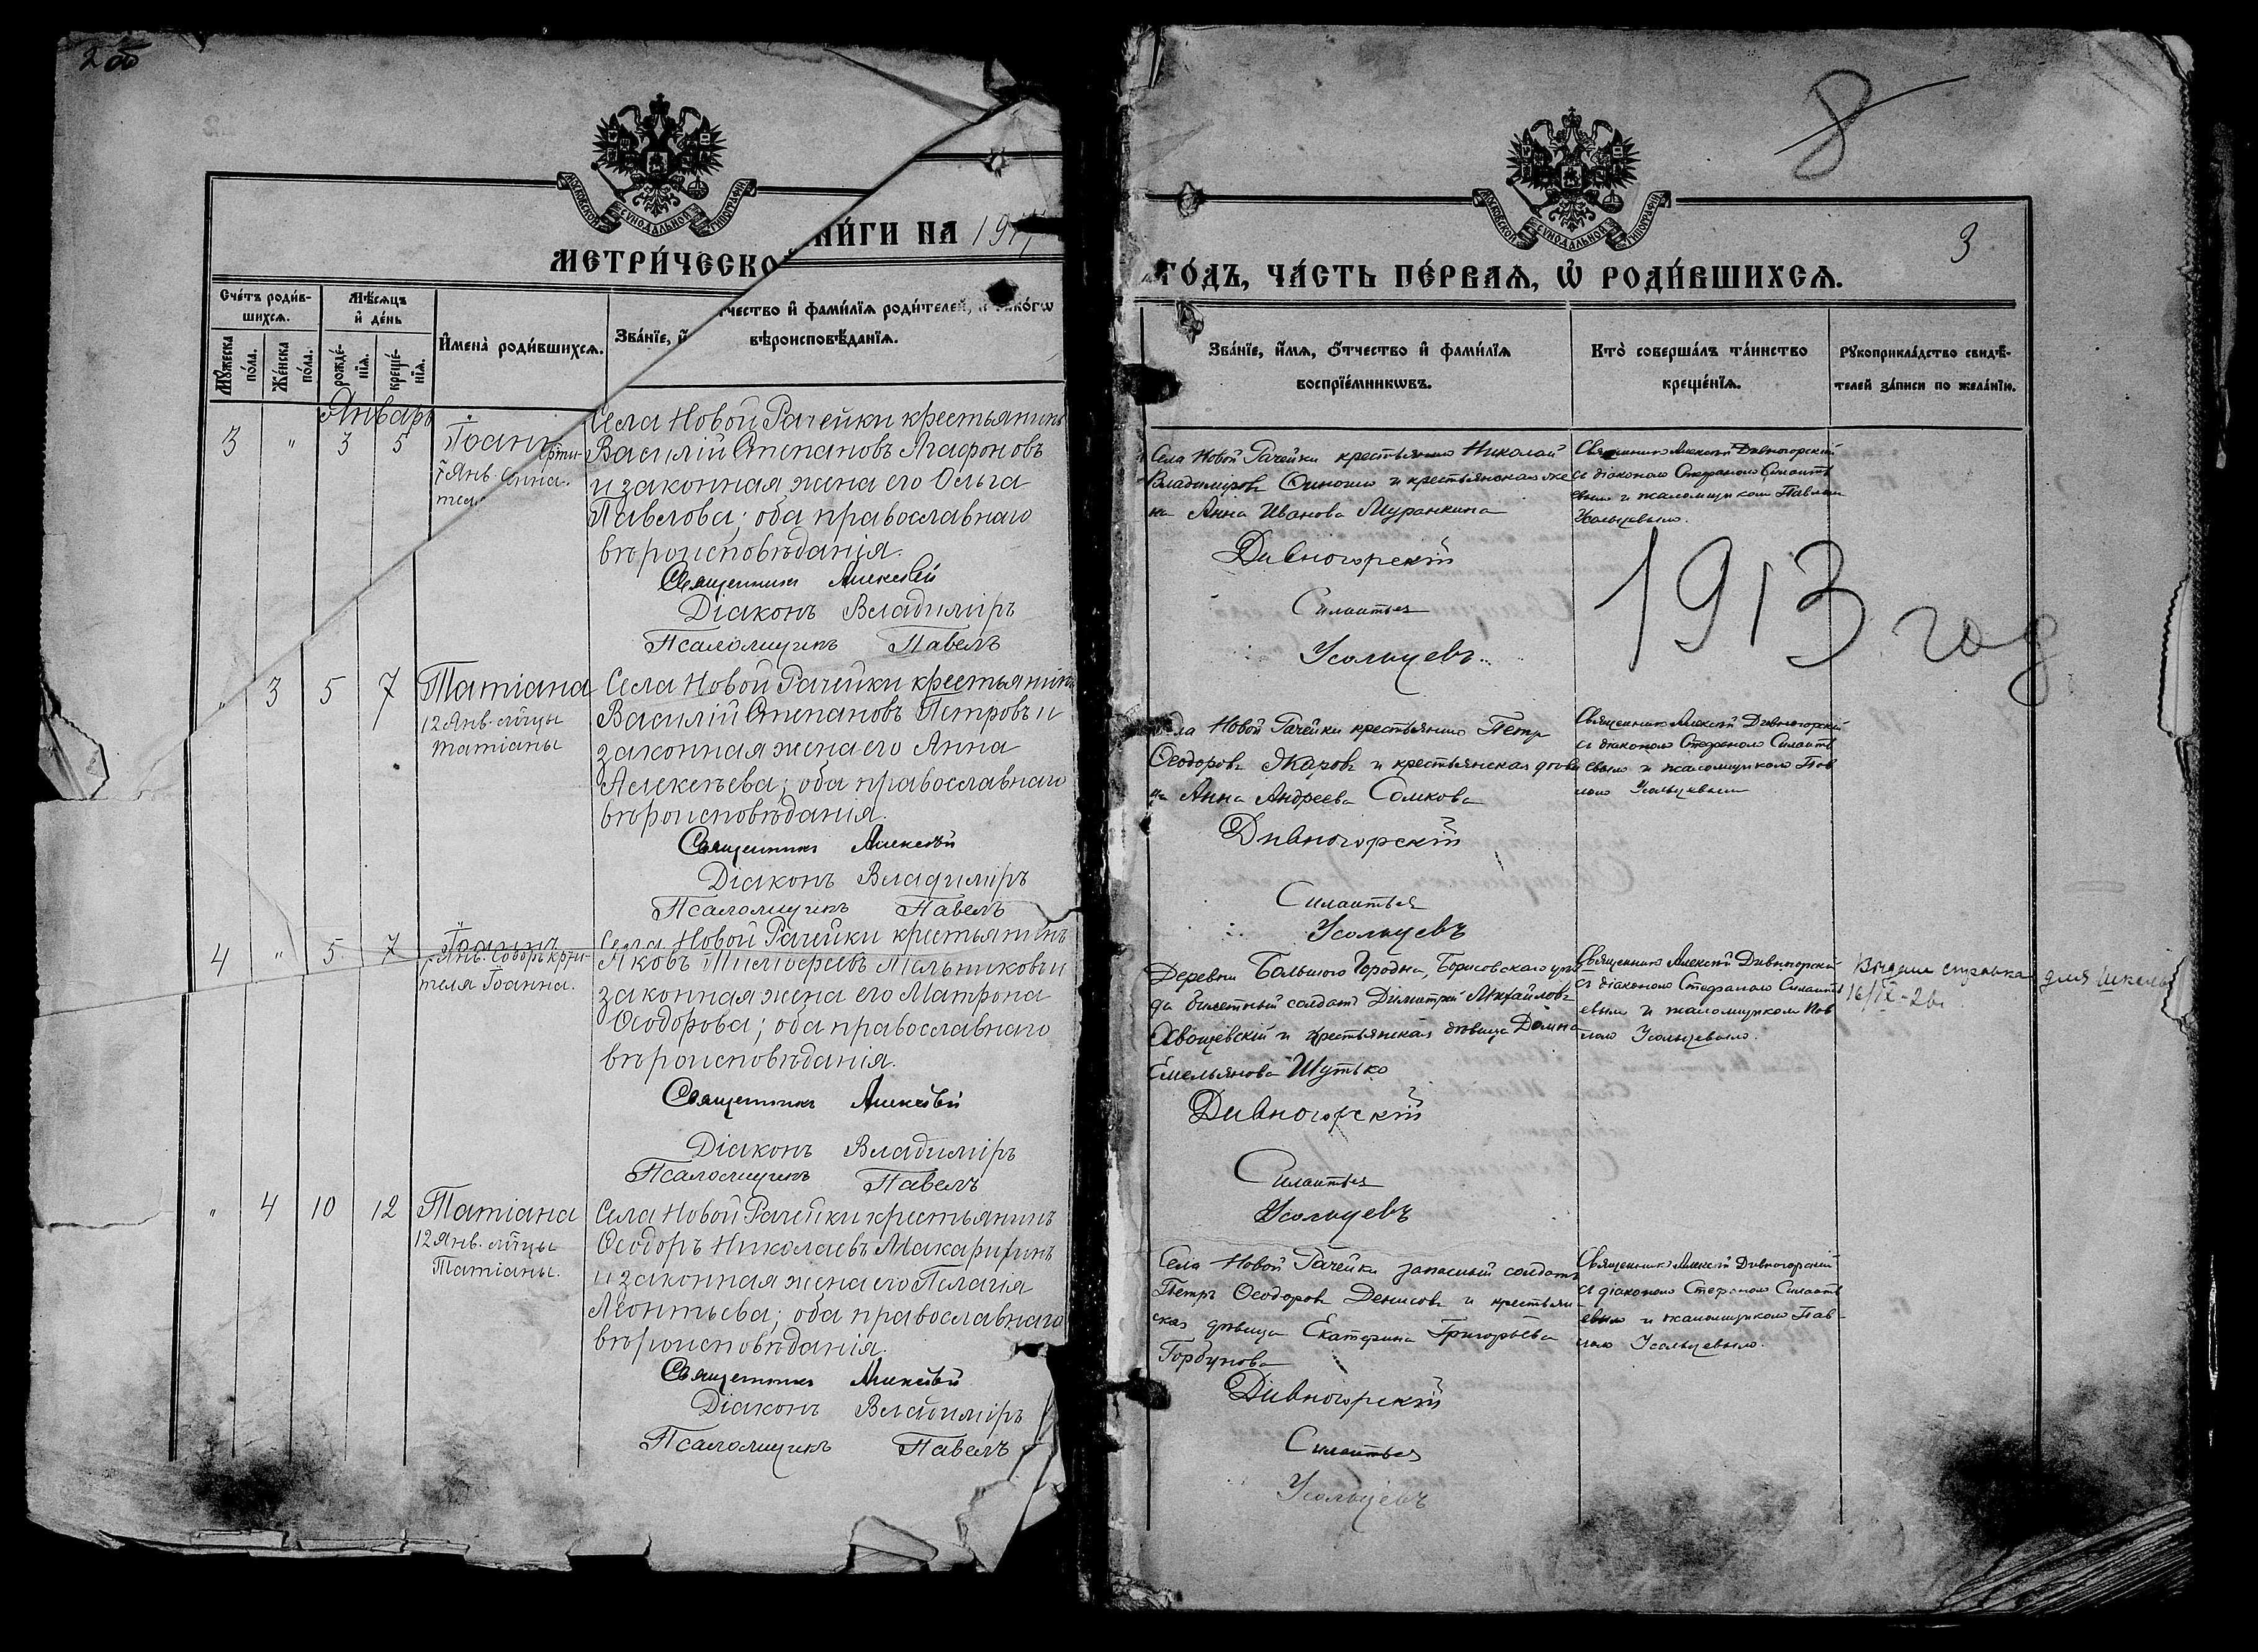 2 об
МОСКОВСКОЙ СѴНОДАЛЬНОЙ ТИПОГРАФІИ
МЕТРИ́ЧЕСКО
НИ́ГИ НА 191
Сче́тъ роди́в-
шихсѧ.
Мѣ́сѧцъ
и҆ де́нь
Мꙋ́жеска
по́ла.
Же́нска
по́ла.
рожде́-
нїѧ.
креще́-
нїѧ.
И҆мена̀ роди́вшихсѧ.
Зва́нїе, и҆́
тчество и҆ фами́лїѧ роди́телей, и҆ ако́гѡ
вѣроисповѣ́данїѧ.
Январь
3 " 3 5 Іоанн
7 Янв
Села Новой Рачейки крестьянинъ
Василій Степановъ Агафоновъ
и законная жена его Ольга
Павлова; оба православнаго
вѣроисповѣданія.
Священникъ Алексѣй
Діаконъ Владиміръ
Псаломщикъ Павелъ
" 3 5 7 Татіана
12 Янв. м̃цы
Татіаны
Села Новой Рачейки крестьянинъ
Василій Степановъ Петровъ и
законная жена его Анна
Алексѣева; оба православнаго
вѣроисповѣданія.
Священникъ Алексѣй
Діаконъ Владиміръ
Псаломщикъ Павелъ
4 " 5 7 Іоаннъ
7 Янв. Соборъ крти-
теля Іоанна.
Села Новой Рачейки крестьянинъ
Яковъ Тимофеевъ Мельниковъ и
законная жена его Матрона
Ѳеодорова; оба православнаго
вѣроисповѣданія.
Священникъ Алексѣй
Діаконъ Владиміръ
Псаломщикъ Павелъ
" 4 10 12 Татіана
12 Янв. м̃цы
Татіаны.
Села Новой Рачейки крестьянинъ
Ѳеодоръ Николаевъ
и законная жена его Пелагія
Леонтьева; оба православнаго
вѣроисповѣданія.
Священникъ Алексѣй
Діаконъ Владиміръ
Псаломщикъ Павелъ
8
3
МОСКОВСКОЙ СѴНОДАЛЬНОЙ ТИПОГРАФІИ
ГО́ДЪ, ЧА́СТЬ ПЕ́РВАѦ, Ѡ҆ РОДИ́ВШИХСѦ.
Зва́нїе, и҆́мѧ, ѻ҆́тчество и҆ фами́лїѧ
воспрїе́мникѡвъ.
Кто̀ соверша́лъ та́инство
креще́нїѧ.
Рꙋкоприкла́дство свидѣ́-
телей за́писи по жела́нїю.
Села Новой Рачейки крестьянинъ Николай
Владиміровъ и крестьянская же
на Анна Иванова Муранкина
Дивногорскій
Силантьев
Усольцевъ
Священникъ Алексѣй Дивногорскій
съ діакономъ Стефаномъ Силантье
вымъ и псаломщикомъ Павломъ
Усольцевымъ.
1913 год
Села Новой Рачейки крестьянинъ Петръ
Ѳеодоровъ Жаровъ и крестьянская дѣви
ца Анна Андреева Сомкова
Дивногорскій
Силантьев
Усольцевъ
Священникъ Алексѣй Дивногорскій
съ діакономъ Стефаномъ Силанть
евымъ и псаломщикомъ Пав
ломъ Усольцевымъ
Деревни Большого Городна, Борисовскаго уѣз
да билетный солдатъ Димитрій Михайловъ
Хвощевскій и крестьянская дѣвица Домна
Емельянова Шутько
Дивногорскій
Силантьев
Усольцевъ
Священникъ Алексѣй Дивногорскій
съ діакономъ Стефаномъ Силанть
евымъ и псаломщикомъ Пав
ломъ Усольцевымъ.
Выдана справка для школы
16/IX-26г.
Села Новой Рачейки запасный солдатъ
Петръ Ѳеодоровъ Денисовъ и крестьян-
ская дѣвица Екатерина Григорьева
Горбунова
Дивногорскій
Силантьев
Усольцевъ
Священникъ Алексѣй Дивногорскій
съ діакономъ Стефаномъ Силанть
евымъ и псаломщикомъ Пав-
ломъ Усольцевымъ.